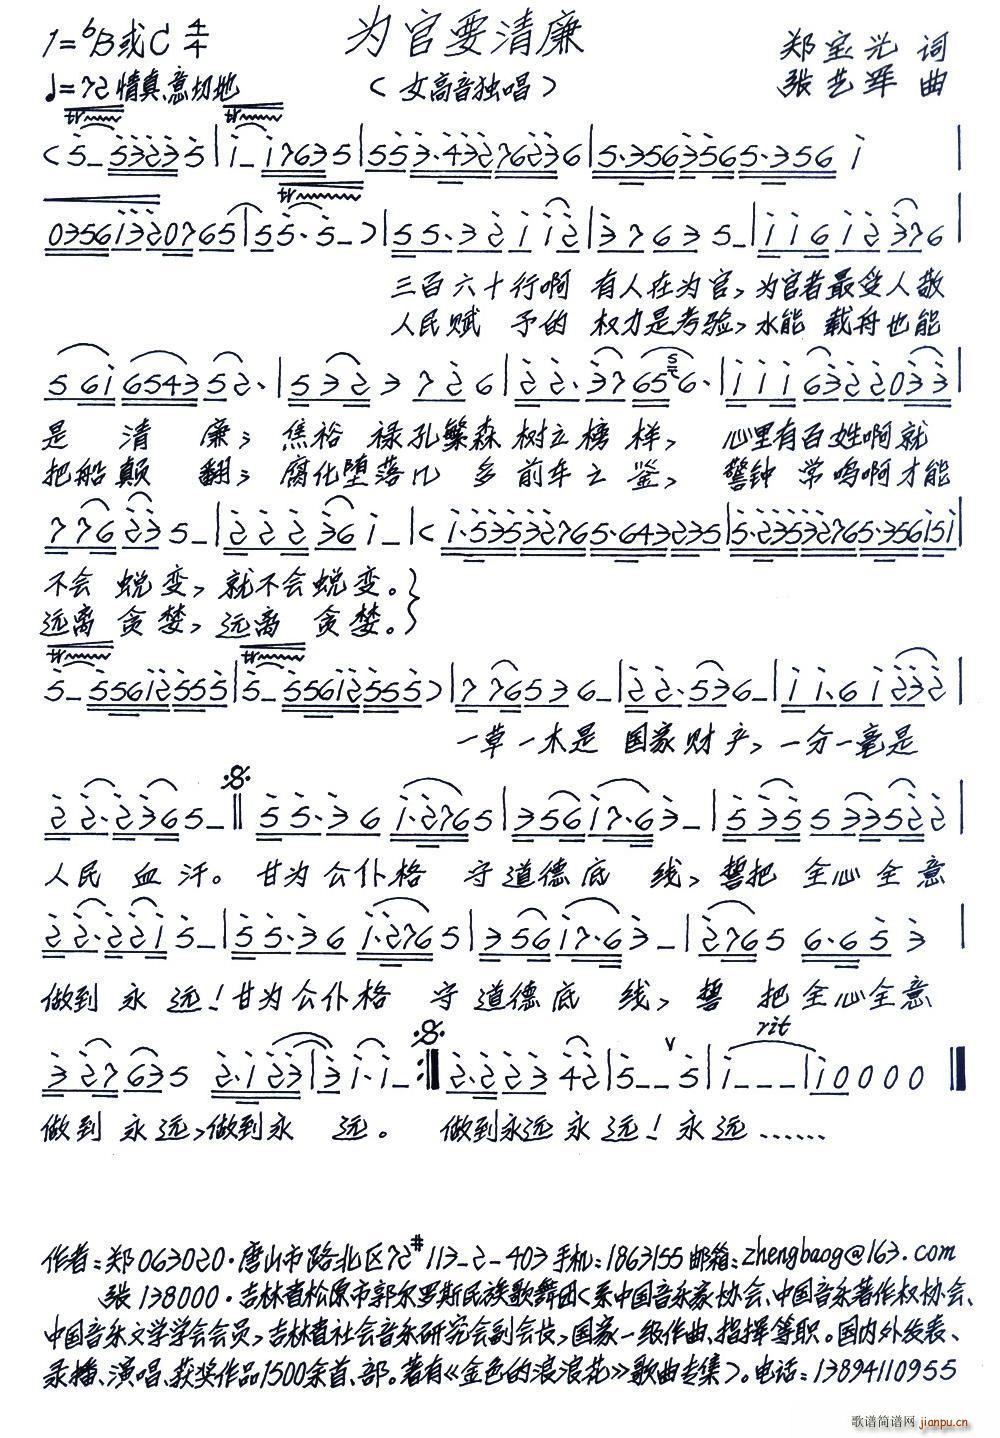 为官要清廉
1=♭B或C 4/4
郑宝光 词
♩=72 情真、意切地
(女高音独唱)
张艺军 曲
三百六十行啊 有人在为官, 为官者最受人敬
人民赋 予的 权力是考验, 水能 载舟也能
是 清 廉; 焦裕 禄孔繁森 树立榜 样, 心里有百姓啊就
把船颠 翻; 腐化堕落几 多 前车之 鉴, 警钟 常鸣啊才能
不会 蜕 变, 就不会蜕变。
远离 贪 婪, 远离 贪婪。
一草一木是 国家财产, 一分一毫是
人民 血 汗。 甘为公仆格 守道德底 线, 誓把 全心全意
做到 永 远! 甘为公仆格 守道德底 线, 誓 把全心全意
rit
做到 永 远, 做到永 远。 做到永远 永 远! 永 远……
作者: 郑 063020·唐山市路北区72#113_2_403 手机: 1863155 邮箱: zhengbaog@163.com
张 138000·吉林省松原市郭尔罗斯民族歌舞团(系中国音乐家协会、中国音乐著作权协会、
中国音乐文学学会会员, 吉林省社会音乐研究会副会长, 国家一级作曲、指挥等职。国内外发表、
录播、演唱、获奖作品1500余首、部。著有《金色的浪浪花》歌曲专集)。电话: 13894110955
歌谱简谱网
jianpu.cn